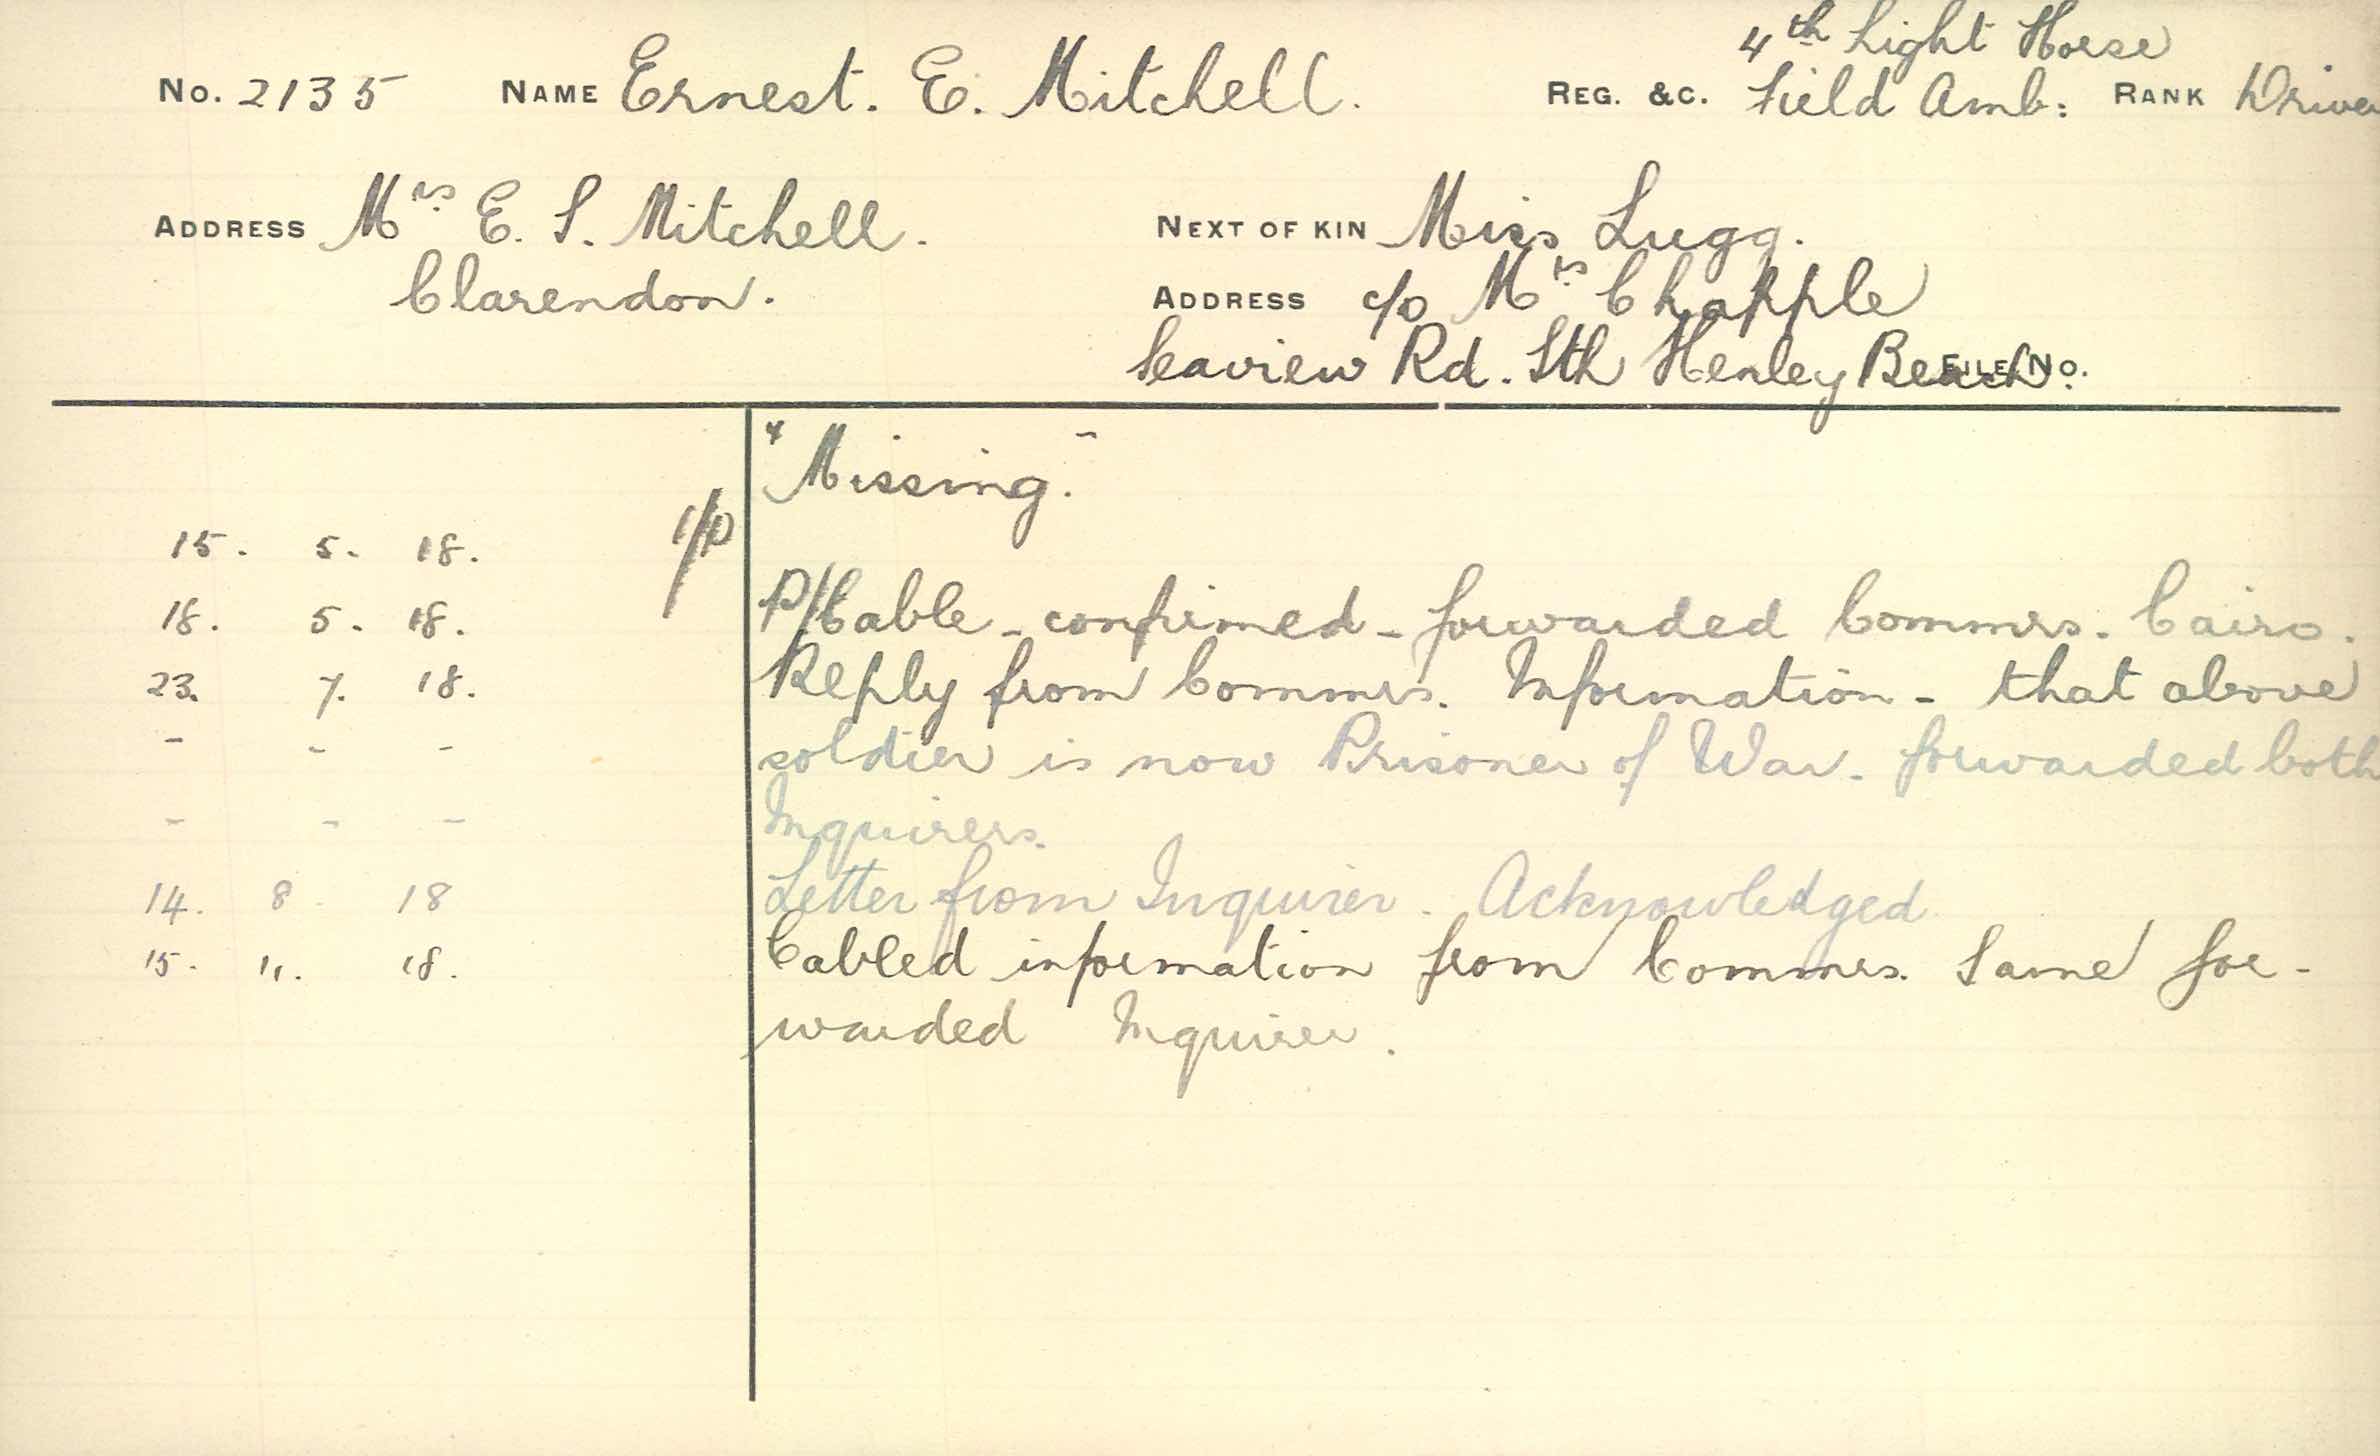 4th Light Horse
No. 2135 NAME Ernest. E. Mitchell. REG. &C. Field Amb: RANK Driver
ADDRESS Mrs E. S. Mitchell. NEXT OF KIN Miss Lugg.
Clarendon. ADDRESS c/o Mrs Chapple
Seaview Rd. Sth Henley Beach. FILE NO.
"Missing."
15. 5. 18.
18. 5. 18. P/Cable - confirmed - forwarded Commrs. Cairo.
23. 7. 18. Reply from Commrs. Information - that above
- - - soldier is now Prisoner of War. forwarded both
- - - Inquirers.
14. 8. 18 Letter from Inquirer. Acknowledged
15. 11. 18. Cabled information from Commrs. Same for-
warded Inquirer.